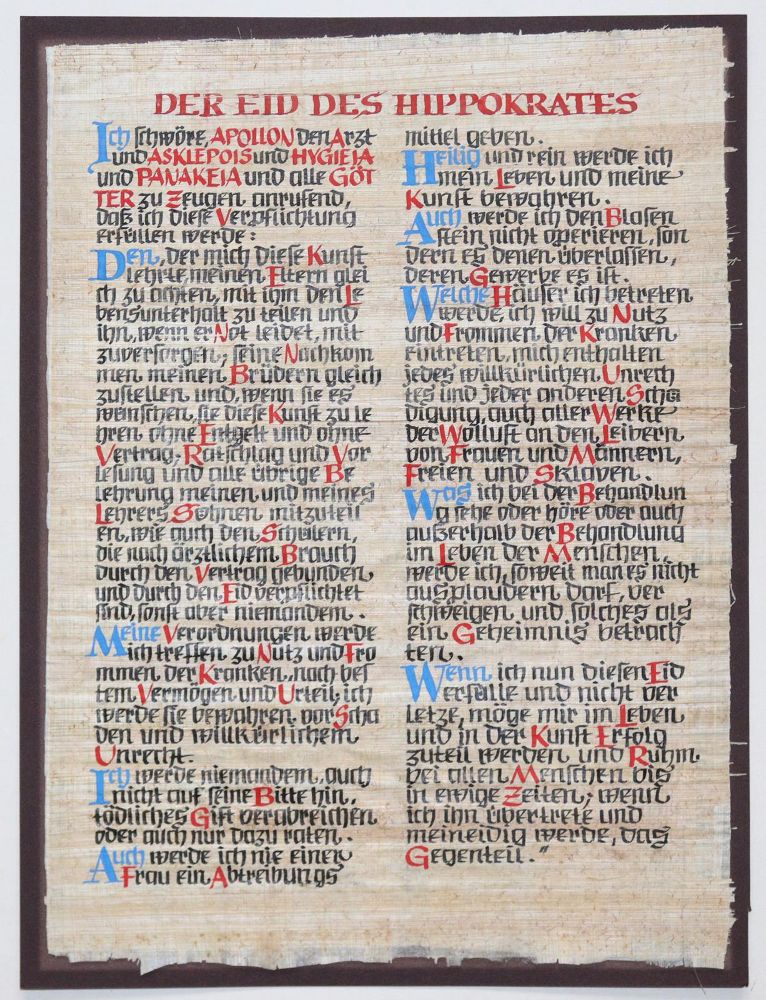 DER EID DES HIPPOKRATES
Ich schwöre, APOLLON den Arzt
und ASKLEPOIS und HYGIEIA
und PANAKEIA und alle GÖT
TER zu Zeugen anrufend,
daß ich diese Verpflichtung
erfüllen werde:
Den, der mich diese Kunst
lehrte, meinen Eltern glei
ch zu achten, mit ihm den Le
bensunterhalt zu teilen und
ihn, wenn er Not leidet, mit
zuversorgen; seine Nachkom
men meinen Brüdern gleich
zustellen und, wenn sie es
wünschen, sie diese Kunst zu le
hren ohne Entgelt und ohne
Vertrag. Ratschlag und Vor
lesung und alle übrige Be
lehrung meinen und meines
Lehrers Söhnen mitzuteil
en, wie auch den Schülern,
die nach ärztlichem Brauch
durch den Vertrag gebunden
und durch den Eid verpflichtet
sind, sonst aber niemandem.
Meine Verordnungen werde
ich treffen zu Nutz und Fro
mmen der Kranken, nach bes
tem Vermögen und Urteil; ich
werde sie bewahren vor Scha
den und willkürlichem
Unrecht.
Ich werde niemandem, auch
nicht auf seine Bitte hin,
tödliches Gift verabreichen
oder auch nur dazu raten.
Auch werde ich nie einer
Frau ein Abtreibungs
mittel geben.
Heilig und rein werde ich
mein Leben und meine
Kunst bewahren.
Auch werde ich den Blasen
stein nicht operieren, son
dern es denen überlassen,
deren Gewerbe es ist.
Welche Häuser ich betreten
werde, ich will zu Nutz
und Frommen der Kranken
eintreten, mich enthalten
jedes willkürlichen Unrech
tes und jeder anderen Schä
digung, auch aller Werke
der Wollust an den Leibern
von Frauen und Männern,
Freien und Sklaven.
Was ich bei der Behandlun
g sehe oder höre oder auch
außerhalb der Behandlung
im Leben der Menschen,
werde ich, soweit man es nicht
ausplaudern darf, ver
schweigen und solches als
ein Geheimnis betrach
ten.
Wenn ich nun diesen Eid
erfülle und nicht ver
letze, möge mir im Leben
und in der Kunst Erfolg
zuteil werden und Ruhm
bei allen Menschen bis
in ewige Zeiten; wenn
ich ihn übertrete und
meineidig werde, das
Gegenteil."